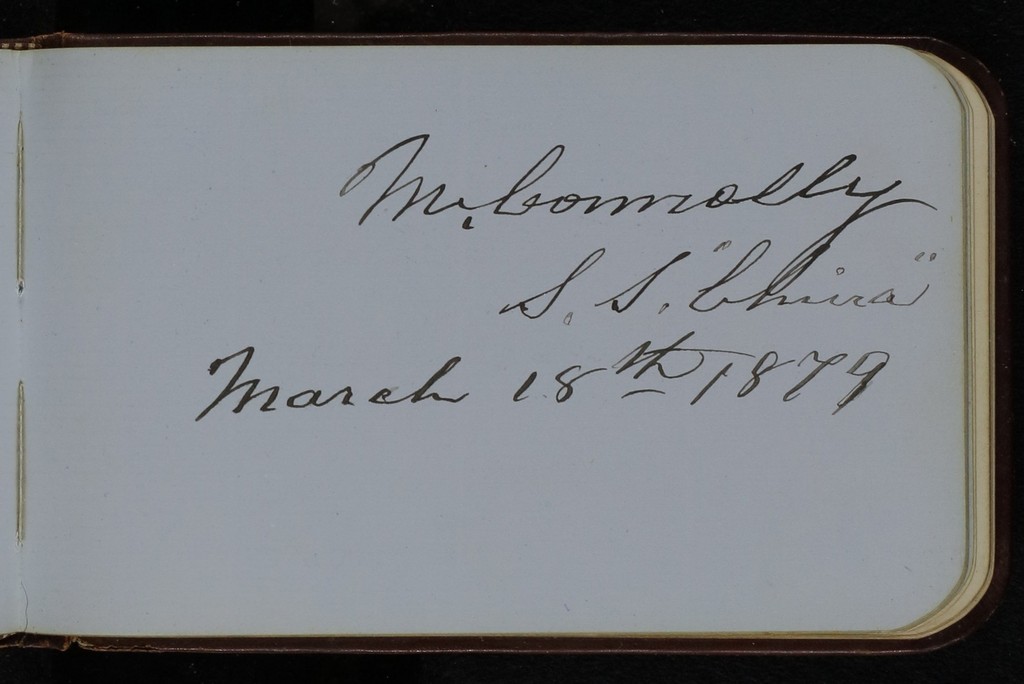 M. Connolly
S. S. "China"
March 18th 1879